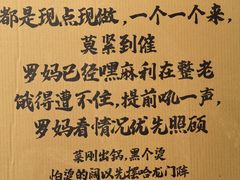 都是现点现做，一个一个来，
莫紧到催
罗妈已经嘿麻利在整老
饿得遭不住，提前吼一声，
罗妈看情况优先照顾
菜刚出锅，黑个烫
怕烫的阔以先摆哈龙门阵